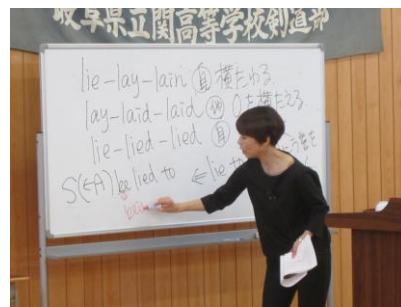 岐阜県立関高等学校剣道部
lie-lay-lain 自 横たわる
lay-laid-laid 他 Oを横たえる
lie-lied-lied 自
S(=A) be lied to ⇐ lie to